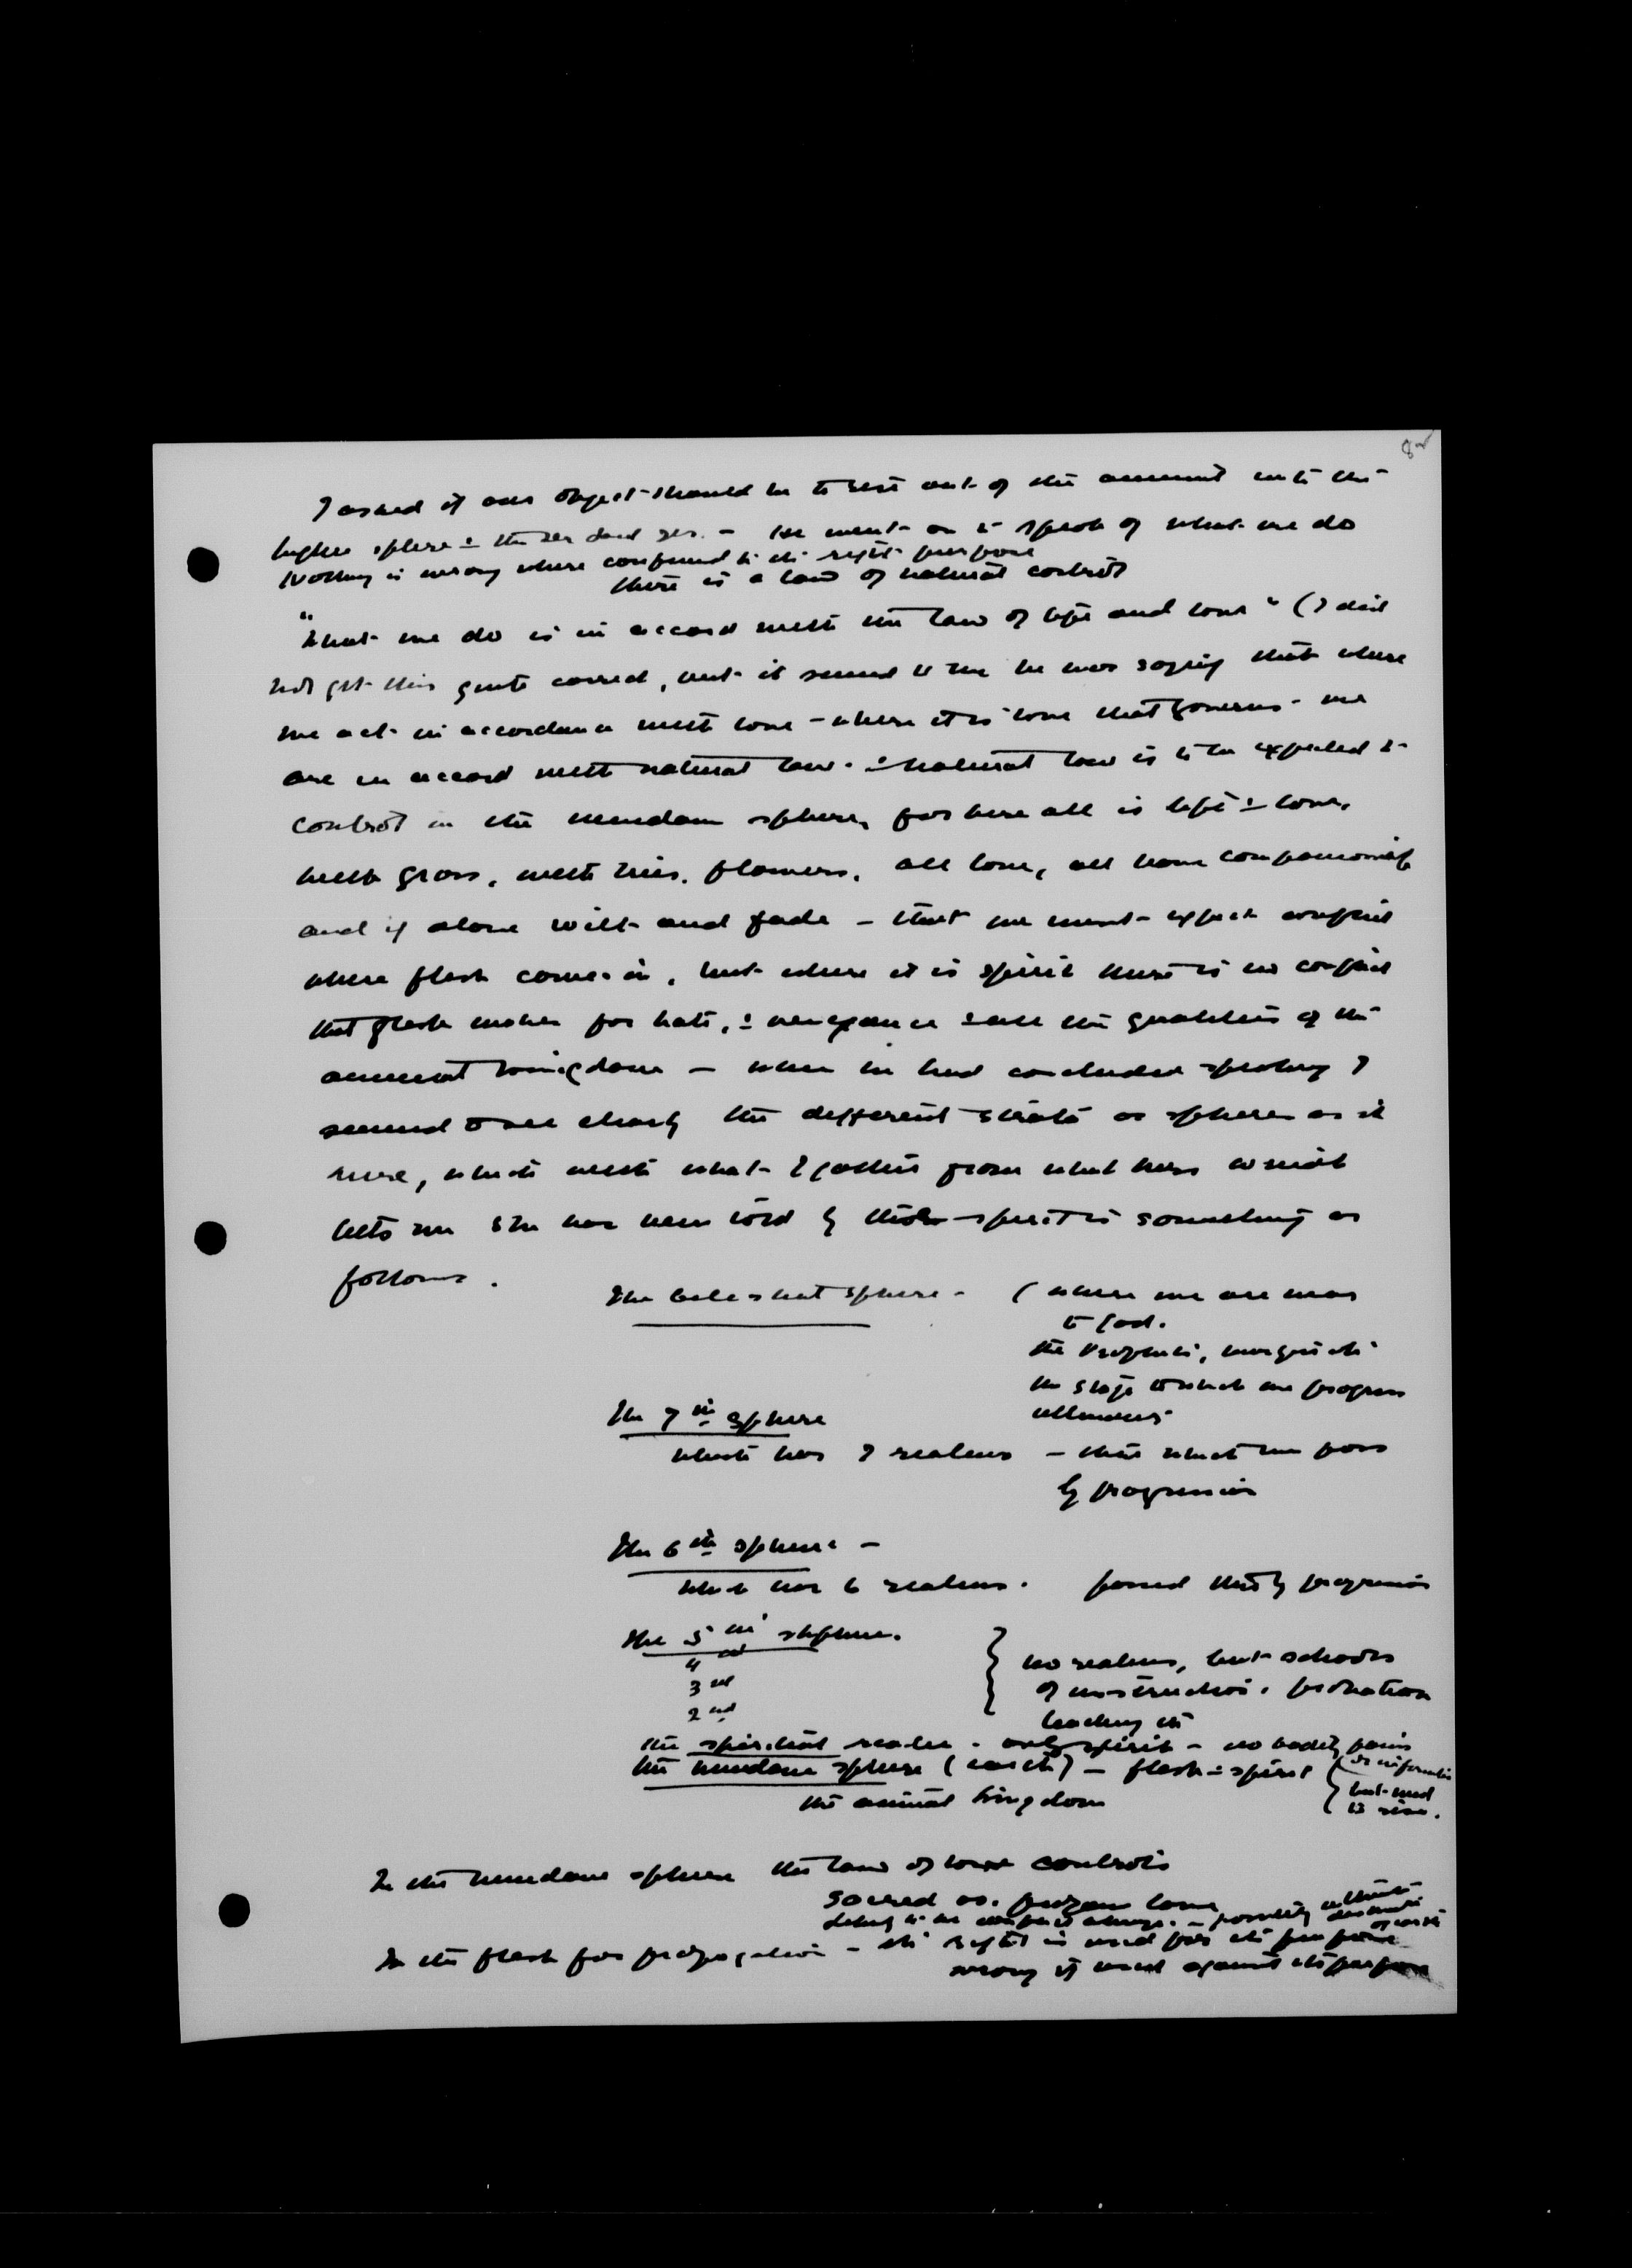 I asked if our object should be to rise out of the animal into the
higher sphere & the seer said yes. - He went on to speak of what we do
Nothing is wrong where confined to its right purpose
there is a law of natural control
"What we do is in accord with the law of life and love" (I did
not get this quite correct, but it seemed to me he was saying that where
we act in accordance with love - where it is love that governs - we
are in accord with natural law. & natural law is to be expected to
control in the mundane sphere, for here all is life & love.
with grass, with trees, flowers, all love, all have companionship
and if alone wilt and fade - that we must expect conflict
where flesh comes in, but where it is spirit there is no conflict
that flesh makes for hate, & vengeance & all the qualities of the
animal kingdom - when he had concluded speaking I
seemed to see clearly the different strata or spheres as it
were, which with what I gather from what
tells me she has been told by spirit is something as
follows.
The Celestial sphere - (where we are near
to God.
the
the stage to which we progress
ultimately
The 7th sphere
which has 7 realms - thro which we pass
by progression
The 6th sphere -
which has 6 realms. passed thro by progression
The 5th sphere.
4th
3rd
2nd
no realms, but schools
of instruction. probation
teaching etc
the spiritual realm - only spirit - no bodily pains
the mundane sphere (earth) - flesh & spirit
the animal kingdom
but need
to rise.
In the mundane sphere the law of love controls
sacred vs. profane love
In the flesh for propagation - its right is used for its purpose
wrong if used against its purpose